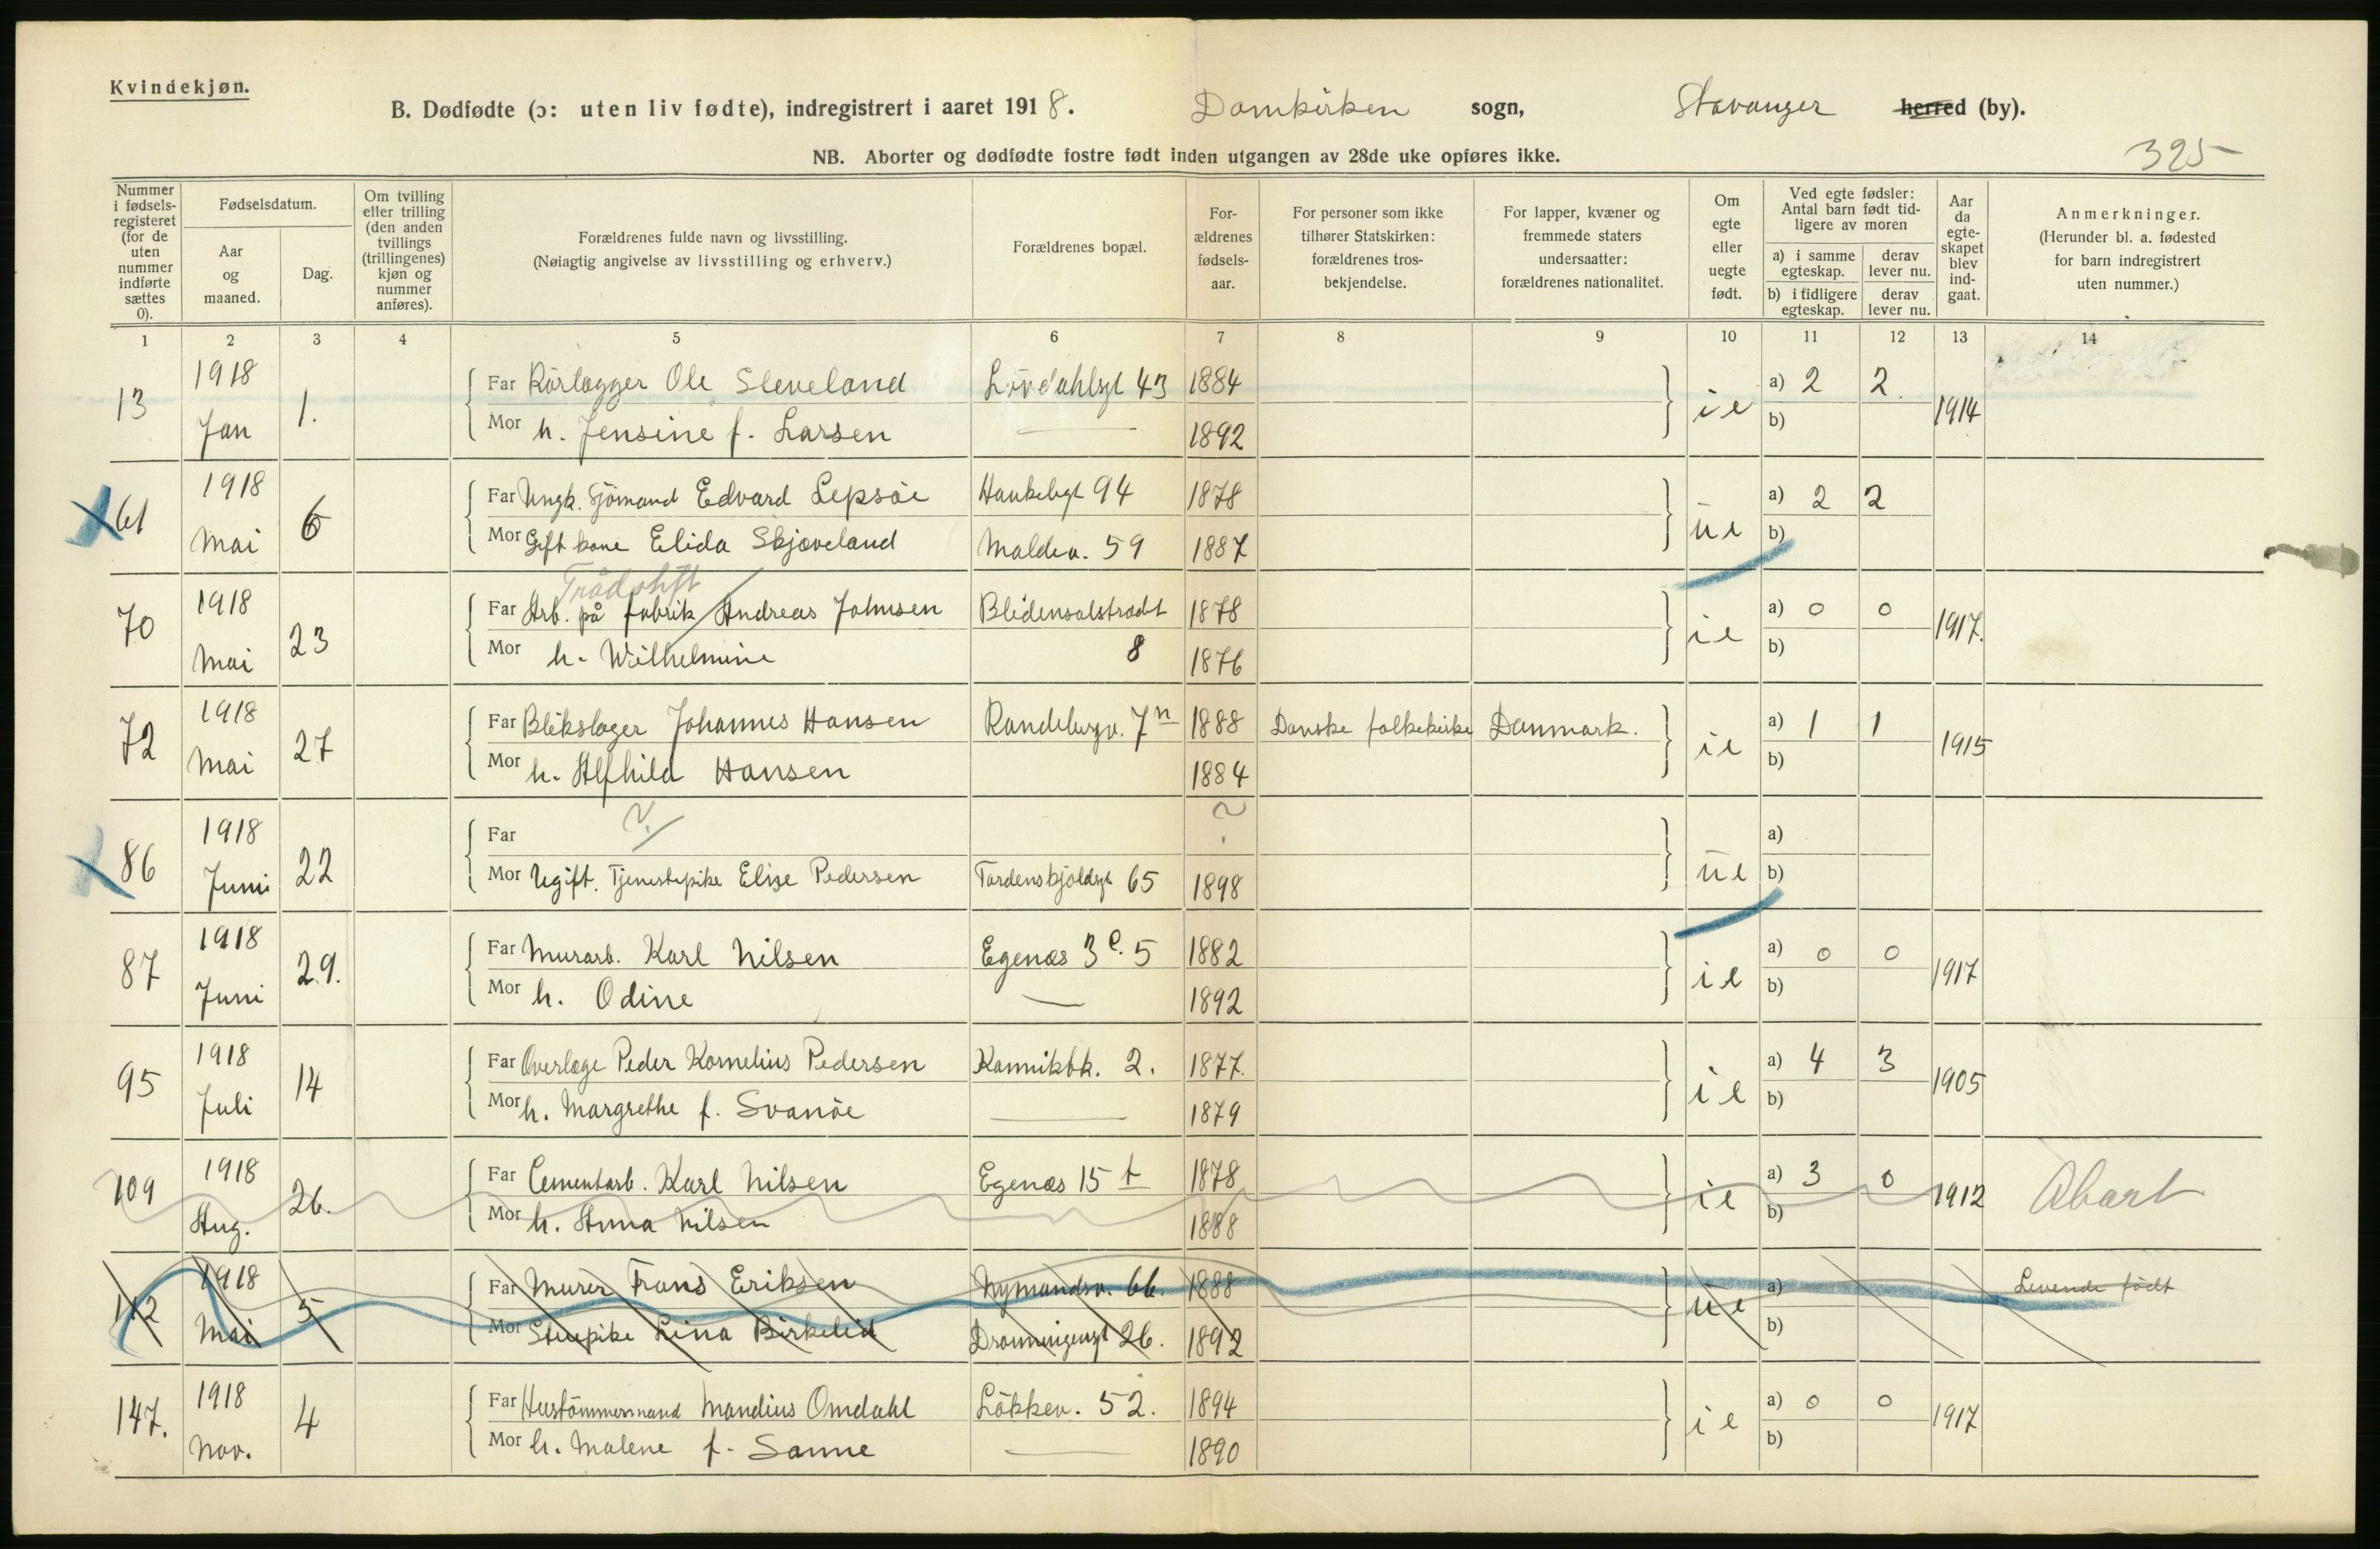 Kvindekjøn.
B. Dødfødte (ɔ: uten liv fødte), indregistrert i aaret 1918. Domkirken sogn, Stavanger herred (by).
NB. Aborter og dødfødte fostre født inden utgangen av 28de uke opføres ikke.
325
Nummer i fødsels-registeret (for de uten nummer indførte sættes 0).
Fødselsdatum.
Aar og maaned.
Dag.
Om tvilling eller trilling (den anden tvillings (trillingenes) kjøn og nummer anføres).
Forældrenes fulde navn og livsstilling.
(Nøiagtig angivelse av livsstilling og erhverv.)
Forældrenes bopæl.
For-ældrenes fødsels-aar.
For personer som ikke tilhører Statskirken: forældrenes tros-bekjendelse.
For lapper, kvæner og fremmede staters undersaatter: forældrenes nationalitet.
Om egte eller uegte født.
Ved egte fødsler: Antal barn født tid-ligere av moren
a) i samme egteskap.
derav lever nu.
b) i tidligere egteskap.
derav lever nu.
Aar da egte-skapet blev ind-gaat.
Anmerkninger.
(Herunder bl. a. fødested for barn indregistrert uten nummer.)
1 2 3 4 5 6 7 8 9 10 11 12 13 14
13 1918 Jan 1.
Far Rörlægger Ole Sleveland Lövdahlsgt 43 1884
Mor h. Jensine f. Larsen — 1892
ie a) 2 2 b) 1914
61 1918 Mai 6
Far Ungk. Sjömand Edvard Lepsöe Haukeligt 94 1878
Mor Gift kone Elida Skjæveland Maldev. 59 1887
ue a) 2 2 b)
70 1918 Mai 23
Trådstift
Far Arb. på fabrik Andreas Johnsen Blidensolstrædt 1878
Mor h. Wilhelmine 8 1876
ie a) 0 0 b) 1917.
72 1918 Mai 27
Far Blikslager Johannes Hansen Randebergv. 7n 1888 Danske folkekirke Danmark.
Mor h. Alfhild Hansen 1884
ie a) 1 1 b) 1915
86 1918 Juni 22
Far ? ?
Mor Ugift. Tjenestepike Elise Pedersen Tordenskjoldsgt 65 1898
ue a) b)
87 1918 Juni 29.
Far Murarb. Karl Nilsen Egenæs 3e. 5 1882
Mor h. Odine — 1892
ie a) 0 0 b) 1917
95 1918 Juli 14
Far Overlæge Peder Kornelius Pedersen Kannikbk. 2. 1877.
Mor h. Margrethe f. Svanöe — 1879
ie a) 4 3 b) 1905
109 1918 Aug. 26.
Far Cementarb. Karl Nilsen Egenæs 15 t 1878
Mor h. Anna Nilsen 1888
ie a) 3 0 b) 1912 Abort
112 1918 Mai 5
Far Murer Frans Eriksen Nymandsv. 66. 1888
Mor Lina Birkelid Dronningensgt 26. 1892
ue a) b) Levende født
147. 1918 Nov. 4
Far Hustömmermand Mandius Omdahl Lökkev. 52. 1894
Mor h. Malene f. Sanne — 1890
ie a) 0 0 b) 1917